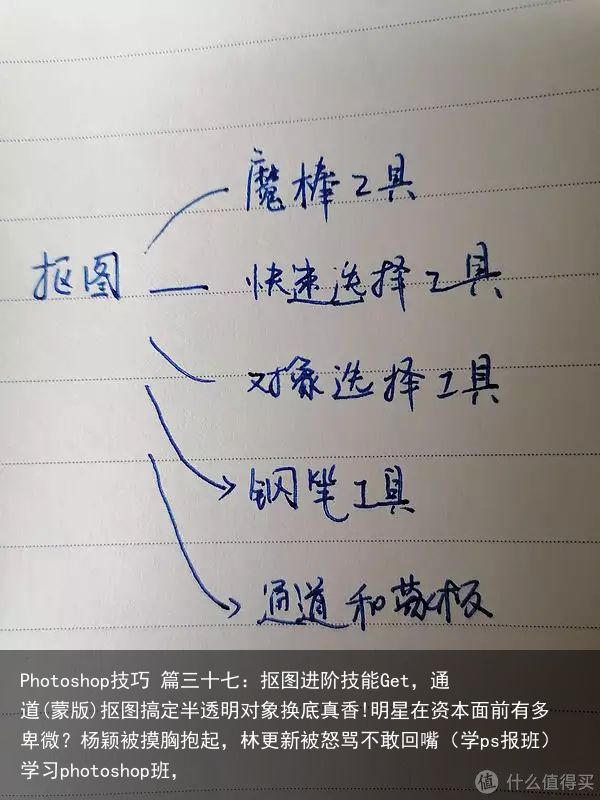 魔棒工具
抠图
快速选择工具
对象选择工具
钢笔工具
通道和蒙板
Photoshop技巧 篇三十七：抠图进阶技能Get，通
道(蒙版)抠图搞定半透明对象换底真香!明星在资本面前有多
卑微？杨颖被摸胸抱起，林更新被怒骂不敢回嘴（学ps报班）
学习photoshop班，
值 什么值得买